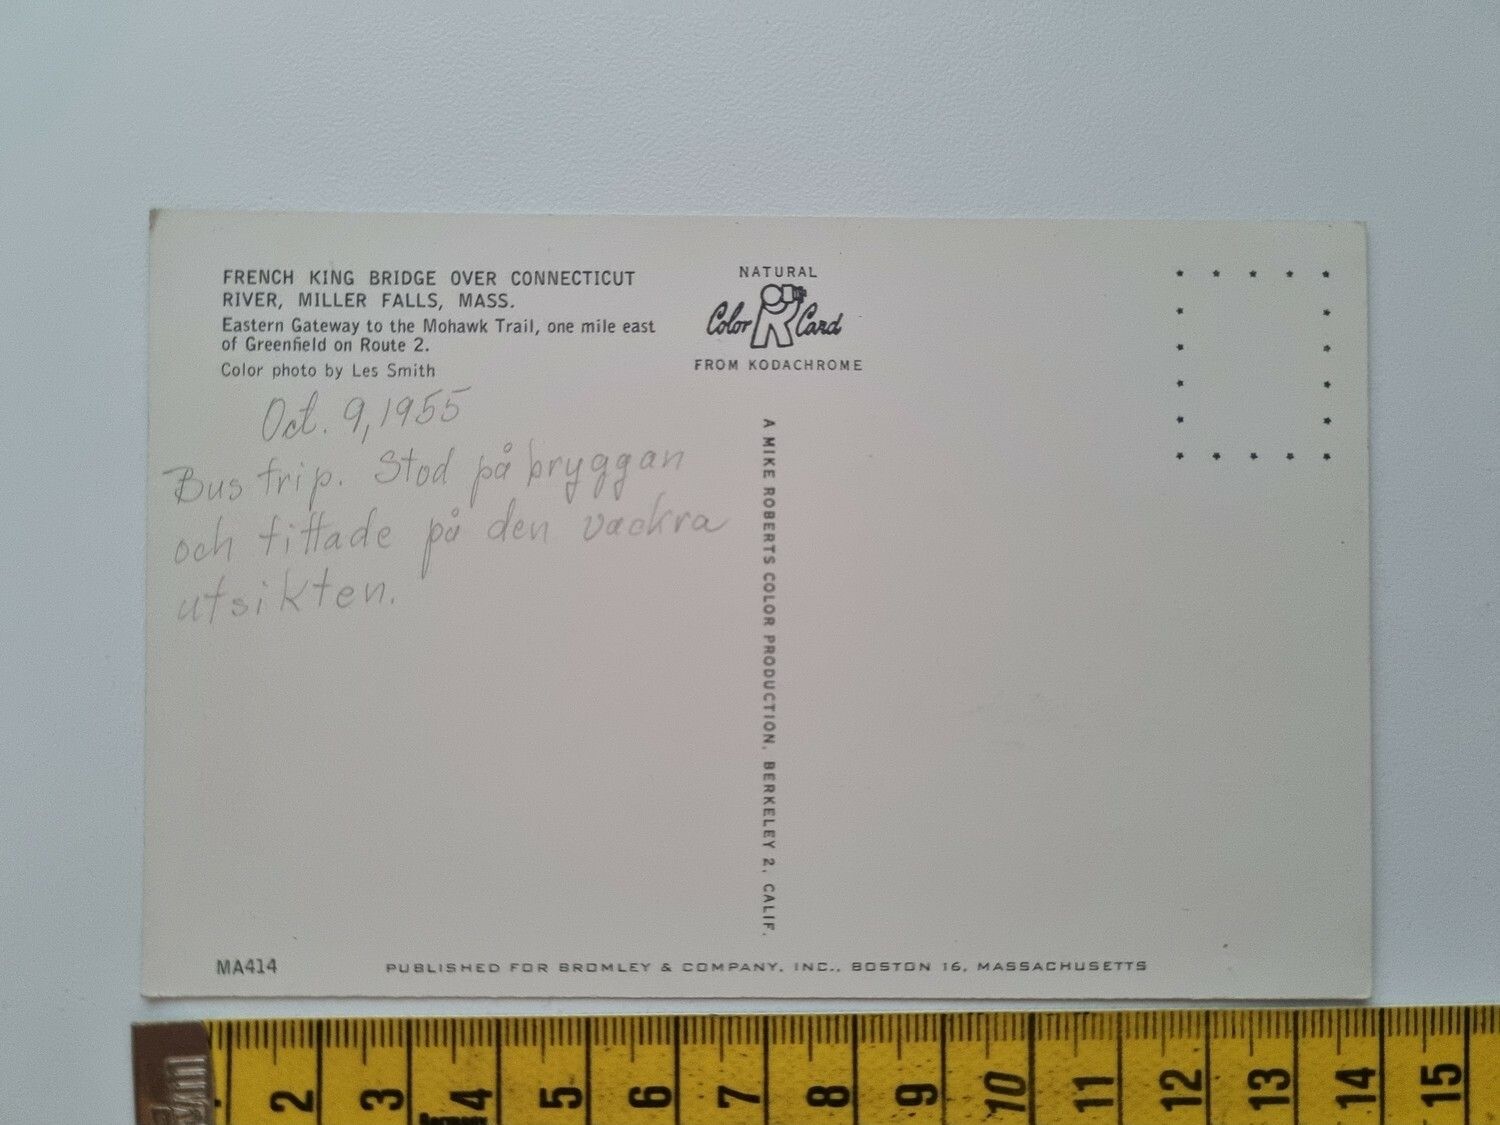 FRENCH KING BRIDGE OVER CONNECTICUT
RIVER, MILLER FALLS, MASS.
Eastern Gateway to the Mohawk Trail, one mile east
of Greenfield on Route 2.
Color photo by Les Smith
Oct. 9, 1955
Bus trip. Stod på bryggan
och tittade på den vackra
utsikten.
NATURAL
Color Card
FROM KODACHROME
A MIKE ROBERTS COLOR PRODUCTION, BERKELEY 2, CALIF.
MA414
PUBLISHED FOR BROMLEY & COMPANY, INC., BOSTON 16, MASSACHUSETTS
2 3 4 5 6 7 8 9 10 11 12 13 14 15
Germany